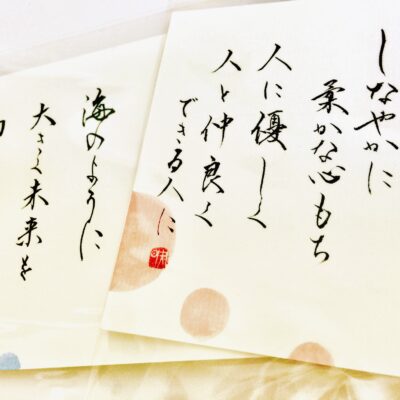 しなやかに
柔かな心もち
人に優しく
人と仲良く
できる人に
海のように
大きく未来を